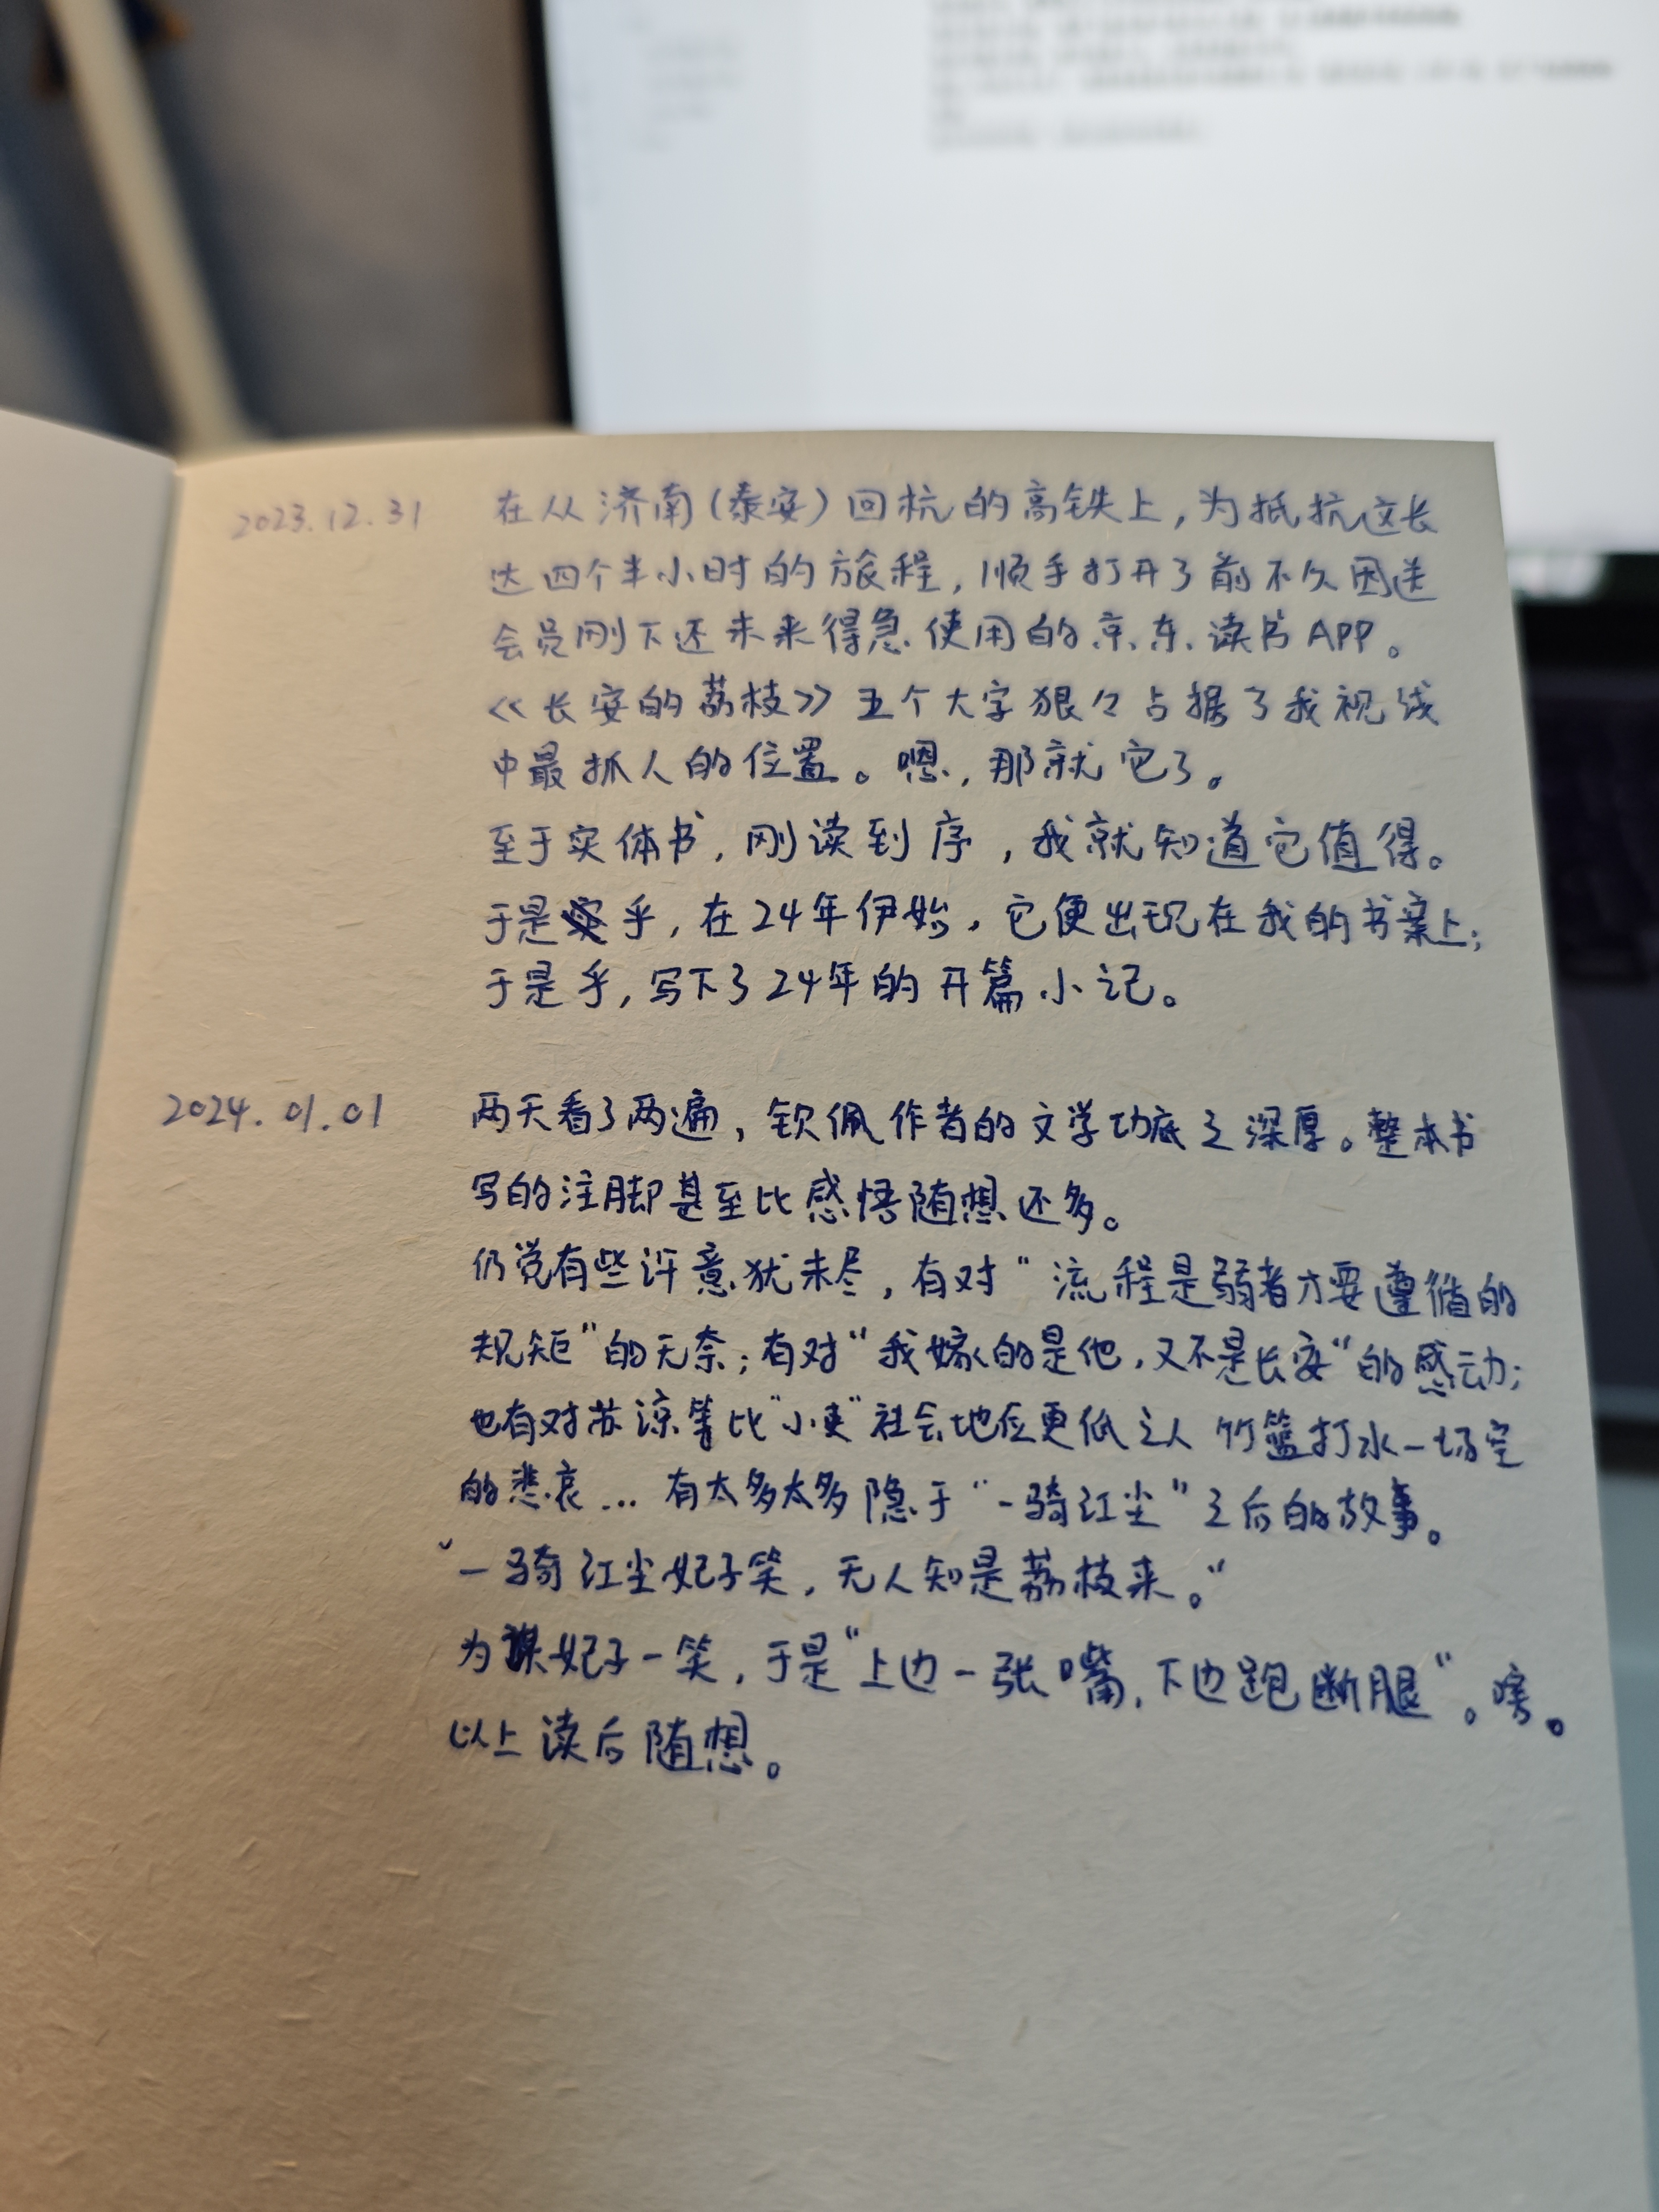 2023.12.31 在从济南(泰安)回杭的高铁上,为抵抗这长
达四个半小时的旅程,顺手打开了前不久因送
会员刚下还未来得急使用的京东读书APP。
《长安的荔枝》五个大字狠々占据了我视线
中最抓人的位置。嗯,那就它了。
至于实体书,刚读到序,我就知道它值得。
于是乎,在24年伊始,它便出现在我的书案上;
于是乎,写下了24年的开篇小记。
2024.01.01 两天看了两遍,钦佩作者的文学功底之深厚。整本书
写的注脚甚至比感悟随想还多。
仍觉有些许意犹未尽,有对“流程是弱者才要遵循的
规矩”的无奈;有对“我嫁的是他,又不是长安”的感动;
也有对苏谅等比“小吏”社会地位更低之人竹篮打水一场空
的悲哀...有太多太多隐于“一骑红尘”之后的故事。
“一骑红尘妃子笑,无人知是荔枝来。”
为谋妃子一笑,于是“上边一张嘴,下边跑断腿”。害。
以上读后随想。